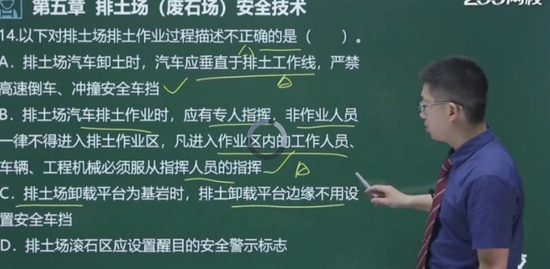 第五章 排土场（废石场）安全技术
14.以下对排土场排土作业过程描述不正确的是（ ）。
A．排土场汽车卸土时，汽车应垂直于排土工作线，严禁
高速倒车、冲撞安全车挡
B．排土场汽车排土作业时，应有专人指挥，非作业人员
一律不得进入排土作业区，凡进入作业区内的工作人员、
车辆、工程机械必须服从指挥人员的指挥
C．排土场卸载平台为基岩时，排土卸载平台边缘不用设
置安全车挡
D．排土场滚石区应设置醒目的安全警示标志